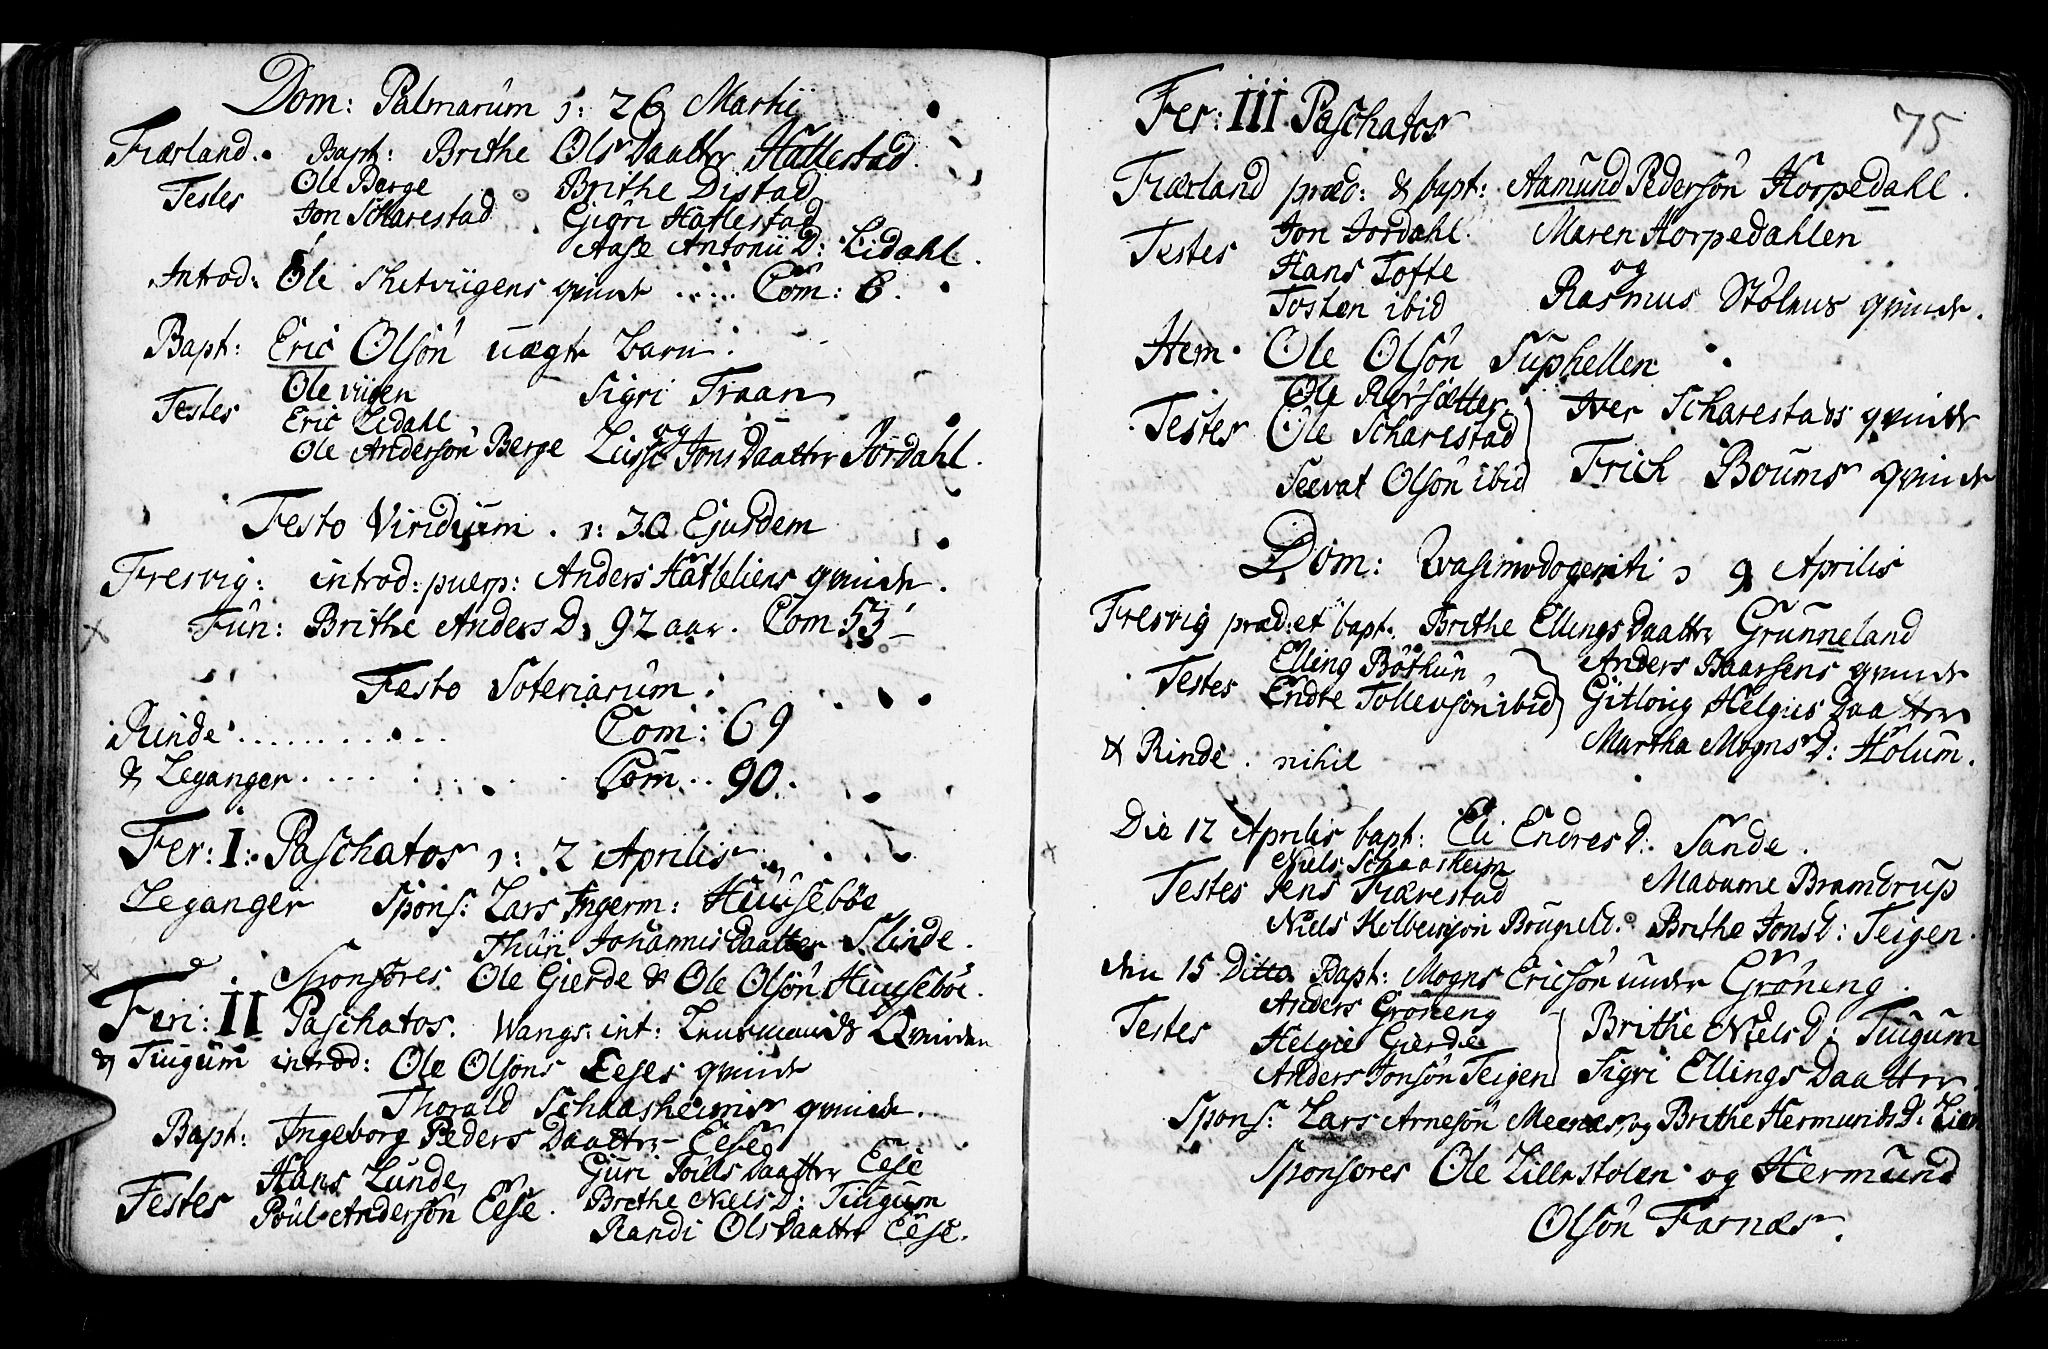 Dom: Palmarum d: 26 Martij
Fiærland. Bapt: Brithe Ols Daatter Hatlestad.
Testes Ole Berge Brithe Distad
Jon Scharestad Gigri Hatlestad
Aase Antonii D: Eidahl.
Introd: Ole Skitviigens qvinde ..... Com: 6.
Bapt: Eric Olsön uægte barn.
Testes Ole viigen Sigri Traan
Eric Eidahl og
Ole Andersön Berge Lusse Jons Daatter Jordahl.
Festo Viridium. d: 30 Ejusdem
Fresvig: introd: puerp: Anders Hatleliens qvinde.
Fun: Brithe Anders D, 92 aar. Com 53
Festo Soteriarum.
Rinde .......... Com: 69
& Leganger .......... Com .. 90.
Fer: I: Paschatos d: 2 Aprilis
Leganger Spons: Lars Ingerm: Huusebøe
Thuri Johannis Daatter Slinde.
Sponsores. Ole Gierde & Ole Olsön Huuseböe.
Feri: II Paschatos. Wangs: int: Lensmands Qvinden
& Tiugum introd: Ole Olsöns Eeses qvinde
Thorald Schaasheims qvinde.
Bapt: Ingeborg Peders Daatter Eese
Testes Hans Lunde Guri Poüls Daatter Eese
Poul Andersön Eese. Brethe Niels D: Tiugum
Randi Ols Daatter Eese.
75
Fer: III Paschatos
Fiærland præd: & bapt: Aamund Pedersön Horpedahl.
Testes Jon Jordahl Maren Horpedahlen
Hans Tofte og
Tosten ibid Rasmus Stölens qvinde.
Hem. Ole Olsön Suphellen
Ole Rörsætter
Testes Ole Scharestad Iver Scharestads qvinde
Seevat Olsön ibid Frich Boums qvinde
Dom: Qvasimodogeniti d 9 Aprilis
Fresvig præd: et bapt. Brithe Ellings Daatter Grunneland
Testes Elling Böthun Anders Baarsens qvinde
Endre Tollevsön ibid Gitloug Helgies Daatter
& Rinde. nihil Martha Mogns D: Hölum.
Die 12 Aprilis bapt: Eli Endres D: Sande.
Niels Schaasheim
Testes Jens Fiærestad Madame Bramdrup
Niels Brithe Jons D: Teigen.
den 15 Ditto Bapt: Mogns Ericsön under Gröneng.
Anders Gröneng
Testes Helgie Gierde Brithe Niels D: Tiugum
Anders Jonsön Teigen Sigri Ellings Daatter
Spons: Lars Arnesön Meenes, og Brithe Hermunds D: Lien
Sponsores Ole Lillestolen og Hermund
Olsön Farnæs.